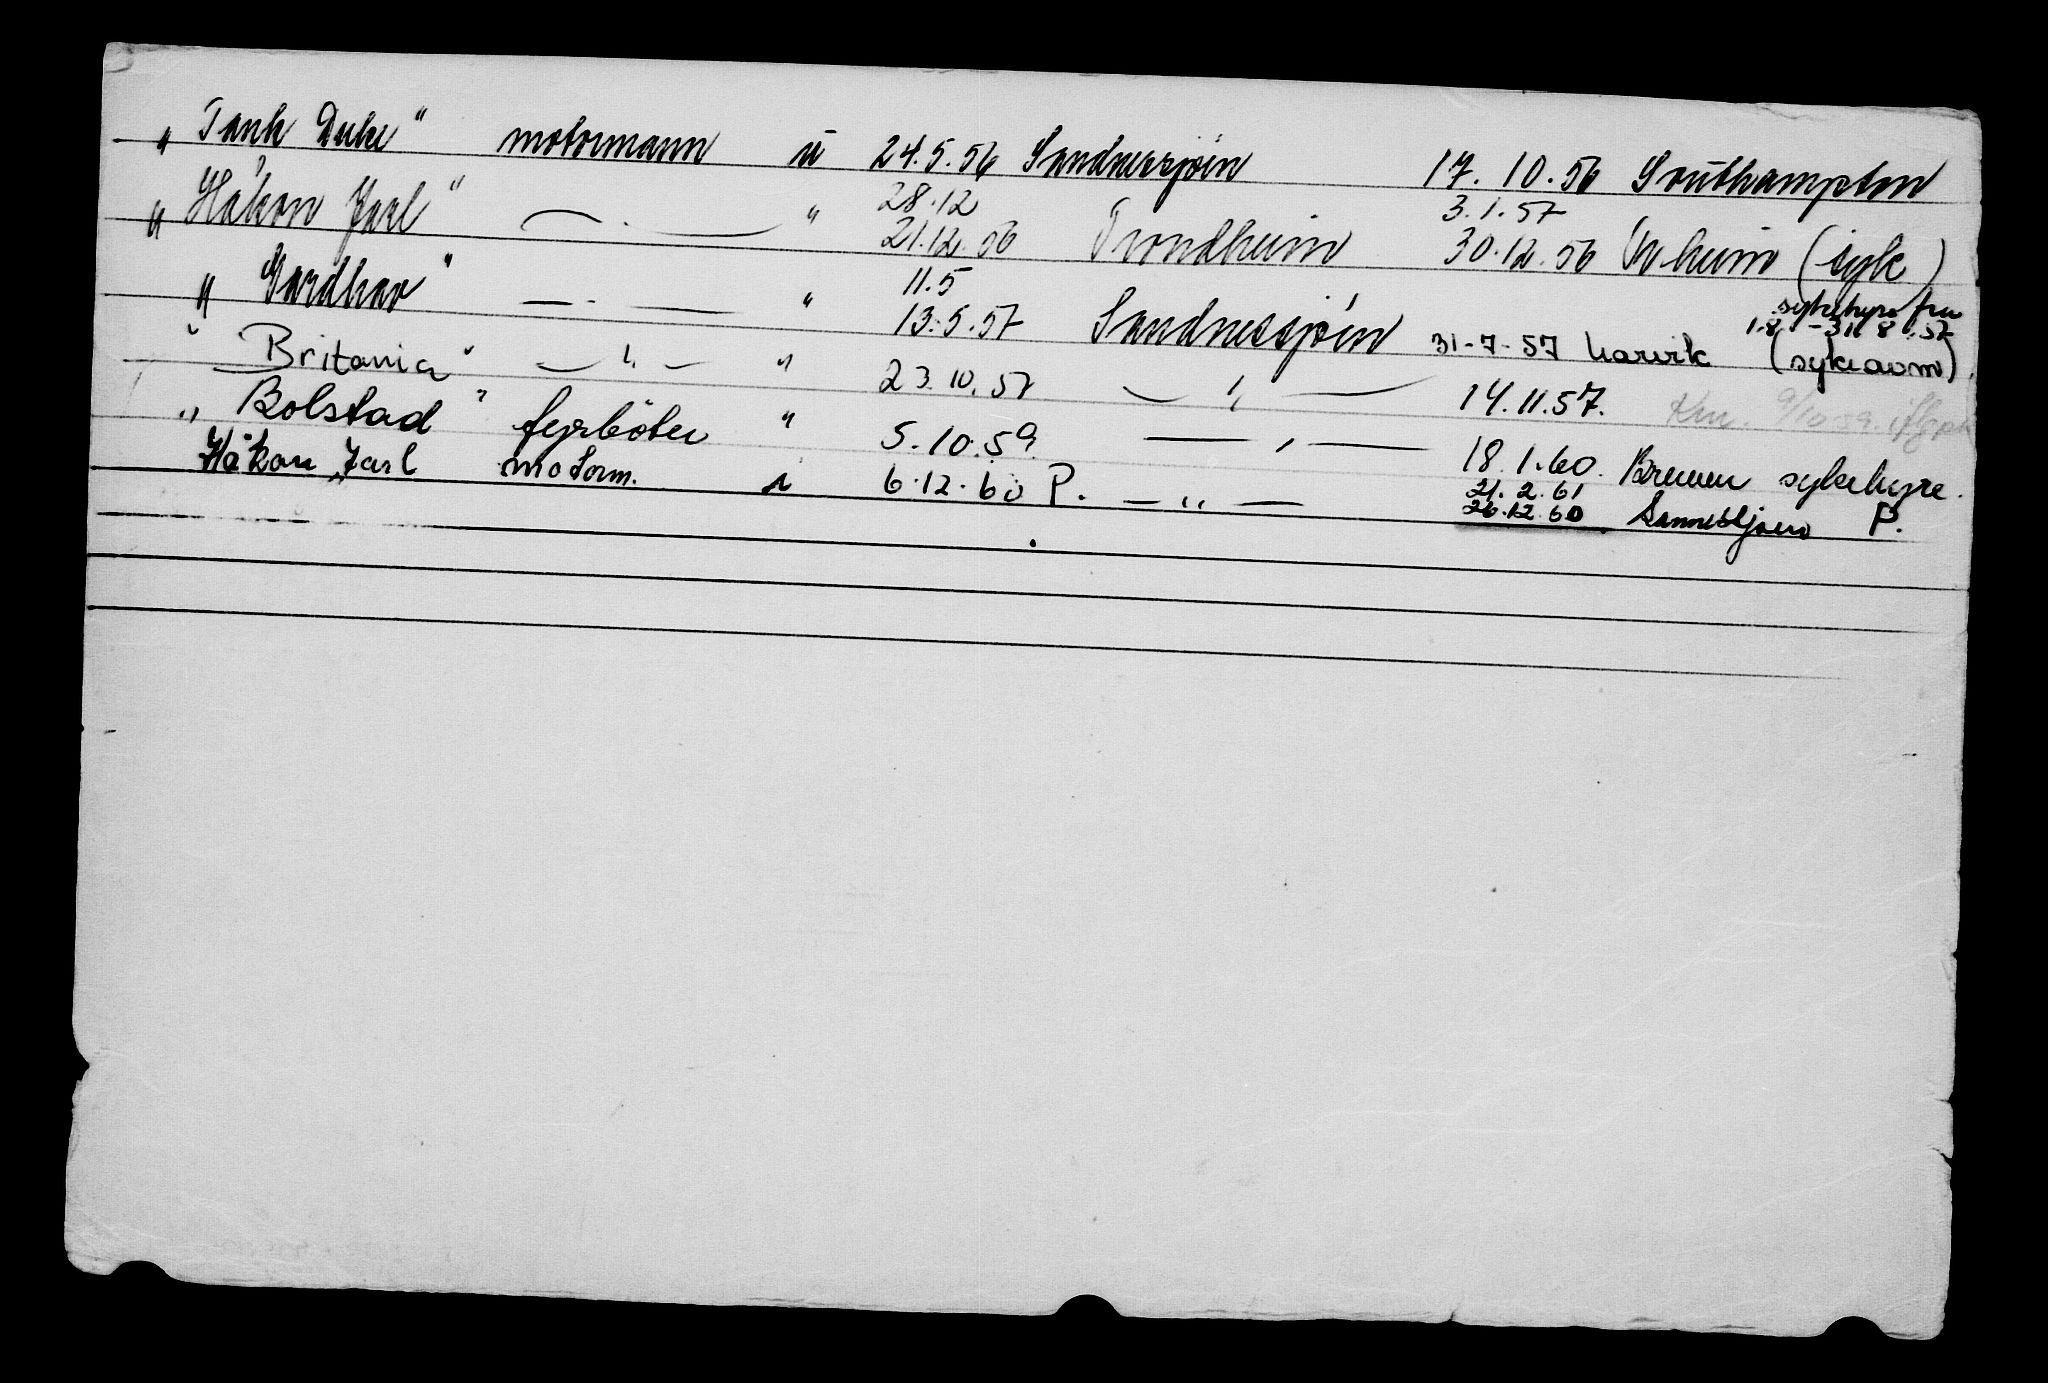 „Tank Duke" motormann u 24.5.56 Sandnessjøen 17.10.56 Southampton
28.12 3.1.57
„Håkon Jarl" — . — " 21.12.56 Trondheim 30.12.56 Tr heim (syk)
11.5 sykehyre fra
1.8. - 31.8.57
„Gardhav" — . — " 13.5.57 Sandnessjøen 31-7-57 Narvik (sykeavm).
"Britania" — " — " 23.10.57 — " — 14.11.57. 9/10 59.
„Bolstad" fyrböter " 5.10.59 — " — 18.1.60. Bremen sykehyre.
21.2.61
Håkon Jarl motorm. i 6.12.60 P. — " — 26.12.60. P.